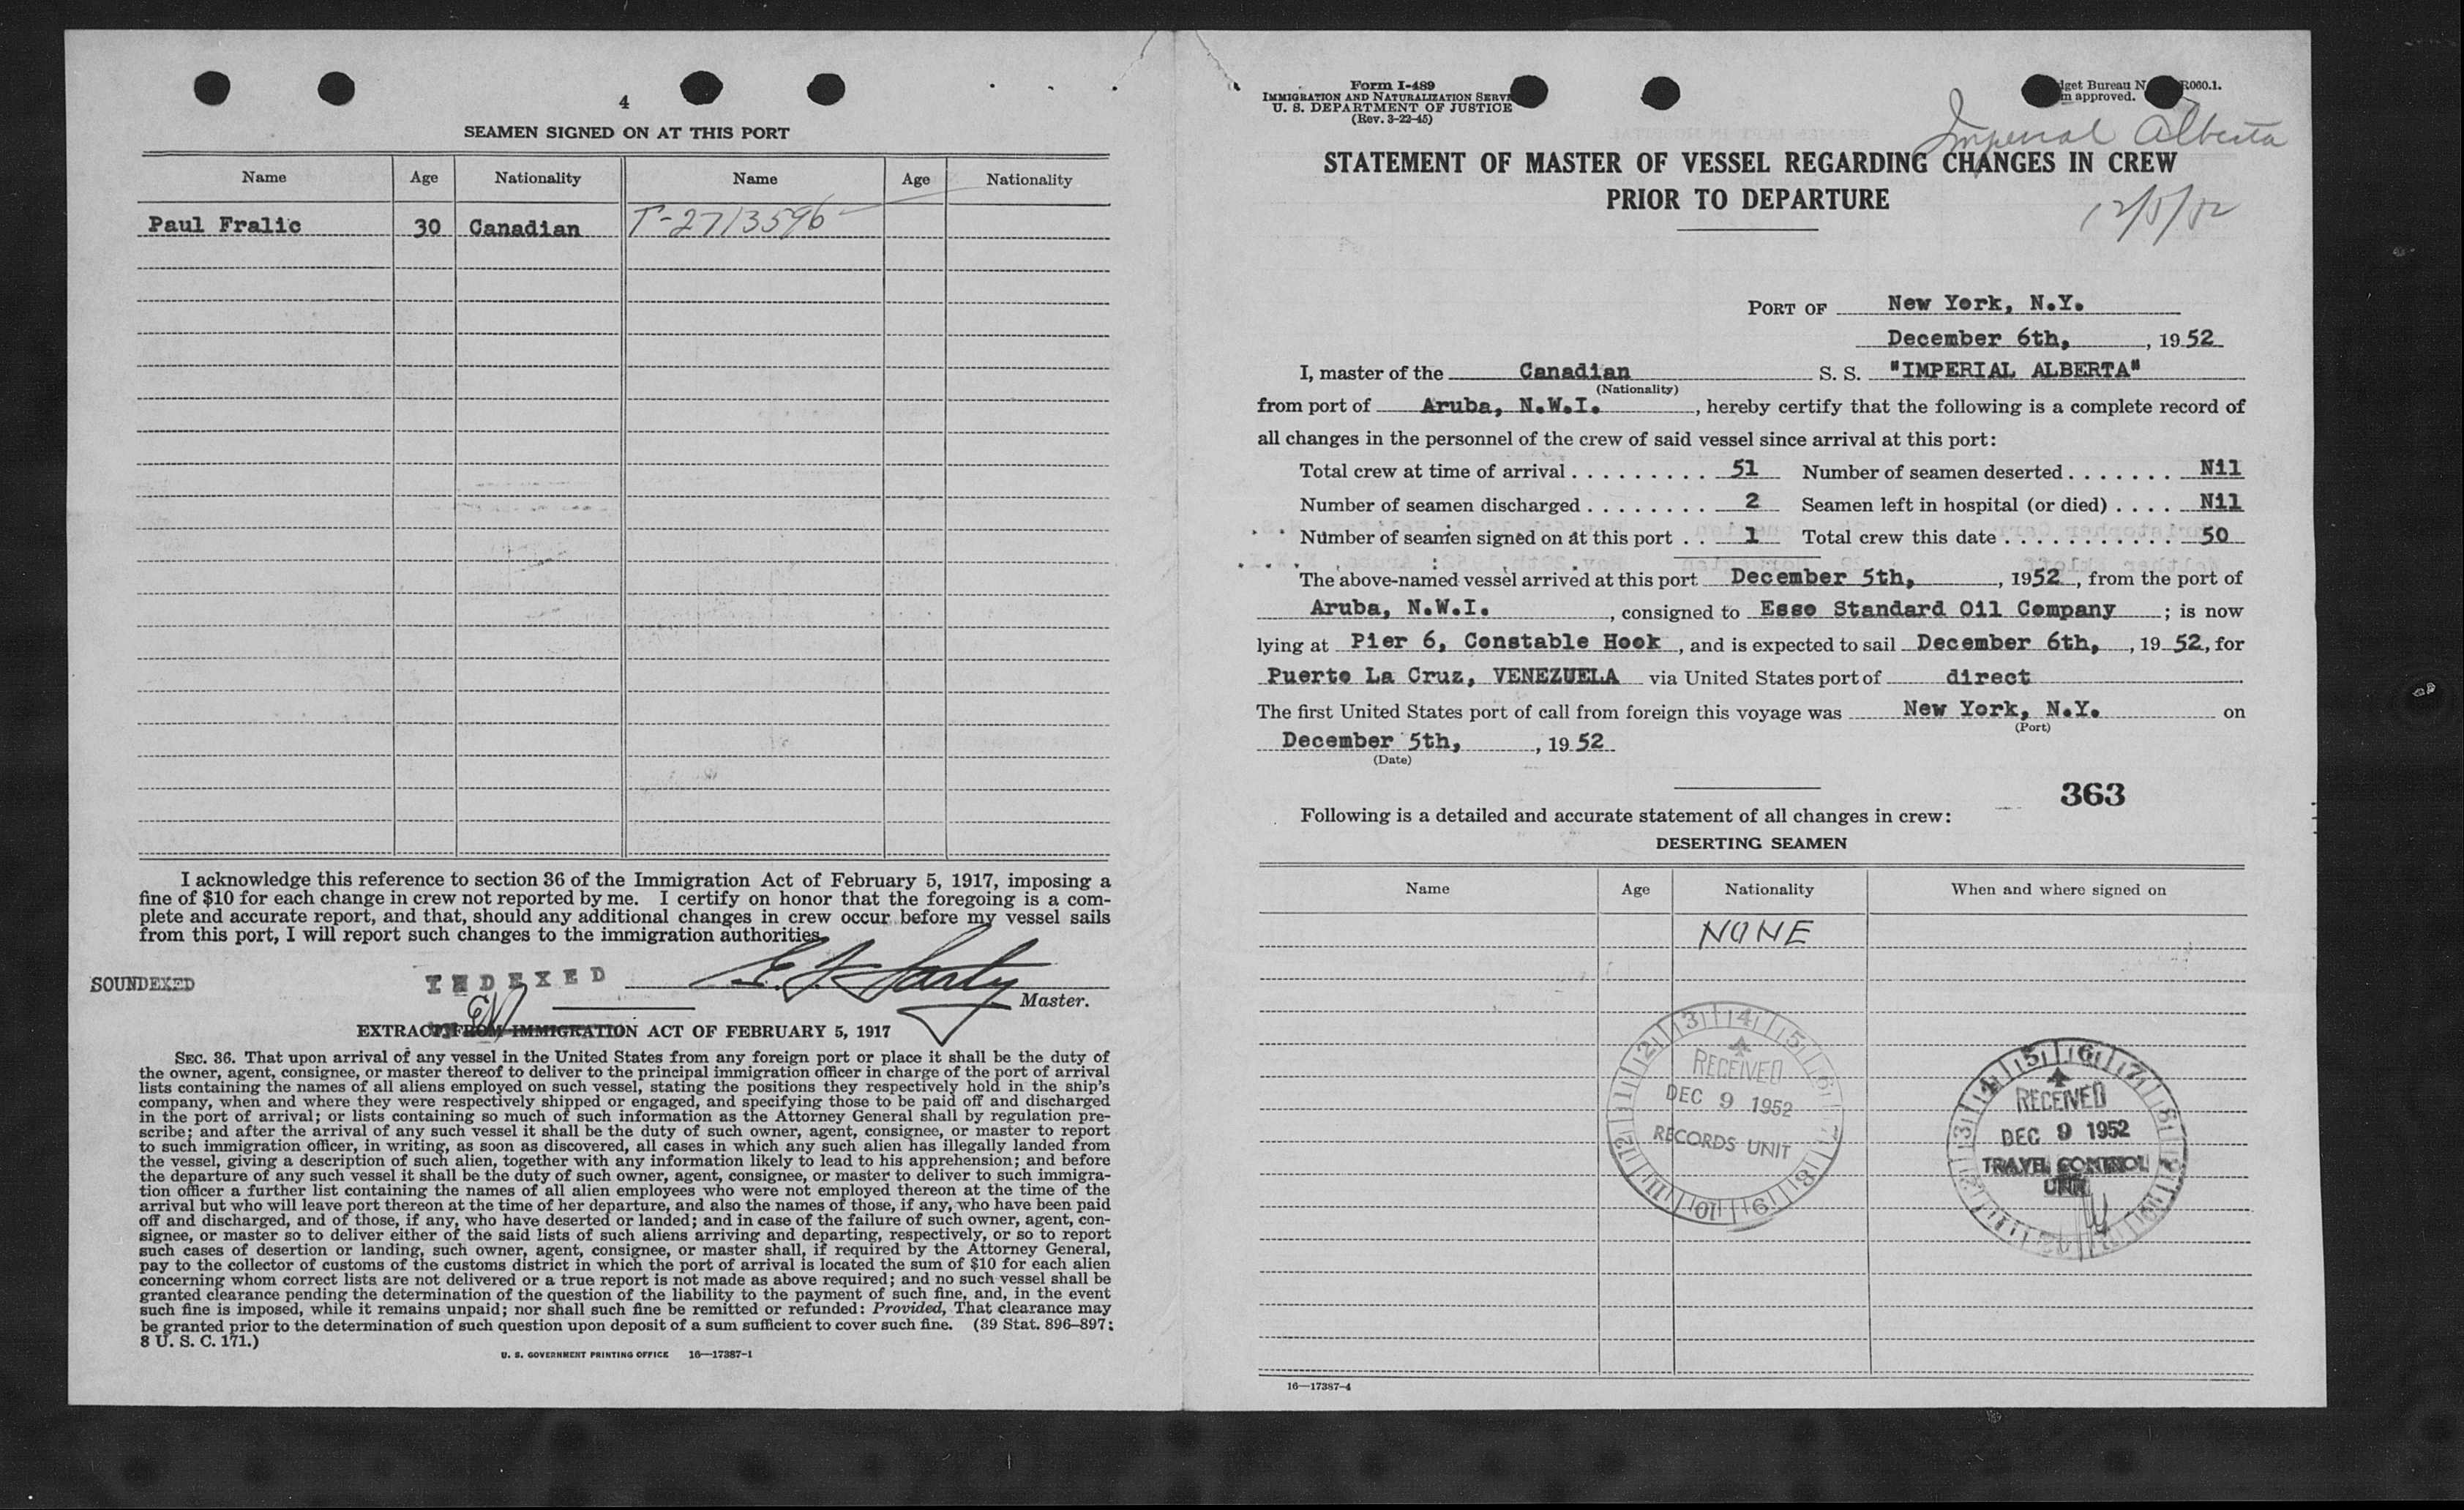 4
SEAMEN SIGNED ON AT THIS PORT
Name Age Nationality Name Age Nationality
Paul Fralic 30 Canadian T-2713596
I acknowledge this reference to section 36 of the Immigration Act of February 5, 1917, imposing a
fine of $10 for each change in crew not reported by me. I certify on honor that the foregoing is a com-
plete and accurate report, and that, should any additional changes in crew occur before my vessel sails
from this port, I will report such changes to the immigration authorities.
SOUNDEXED
INDEXED
Master.
EXTRACT FROM IMMIGRATION ACT OF FEBRUARY 5, 1917
SEC. 36. That upon arrival of any vessel in the United States from any foreign port or place it shall be the duty of
the owner, agent, consignee, or master thereof to deliver to the principal immigration officer in charge of the port of arrival
lists containing the names of all aliens employed on such vessel, stating the positions they respectively hold in the ship's
company, when and where they were respectively shipped or engaged, and specifying those to be paid off and discharged
in the port of arrival; or lists containing so much of such information as the Attorney General shall by regulation pre-
scribe; and after the arrival of any such vessel it shall be the duty of such owner, agent, consignee, or master to report
to such immigration officer, in writing, as soon as discovered, all cases in which any such alien has illegally landed from
the vessel, giving a description of such alien, together with any information likely to lead to his apprehension; and before
the departure of any such vessel it shall be the duty of such owner, agent, consignee, or master to deliver to such immigra-
tion officer a further list containing the names of all alien employees who were not employed thereon at the time of the
arrival but who will leave port thereon at the time of her departure, and also the names of those, if any, who have been paid
off and discharged, and of those, if any, who have deserted or landed; and in case of the failure of such owner, agent, con-
signee, or master so to deliver either of the said lists of such aliens arriving and departing, respectively, or so to report
such cases of desertion or landing, such owner, agent, consignee, or master shall, if required by the Attorney General,
pay to the collector of customs of the customs district in which the port of arrival is located the sum of $10 for each alien
concerning whom correct lists are not delivered or a true report is not made as above required; and no such vessel shall be
granted clearance pending the determination of the question of the liability to the payment of such fine, and, in the event
such fine is imposed, while it remains unpaid; nor shall such fine be remitted or refunded: Provided, That clearance may
be granted prior to the determination of such question upon deposit of a sum sufficient to cover such fine. (39 Stat. 896–897;
8 U. S. C. 171.)
U. S. GOVERNMENT PRINTING OFFICE 16—17387-1
Form I-489
IMMIGRATION AND NATURALIZATION SERV
U. S. DEPARTMENT OF JUSTICE
(Rev. 3-22-45)
get Bureau N R060.1.
m approved.
Imperial Alberta
STATEMENT OF MASTER OF VESSEL REGARDING CHANGES IN CREW
PRIOR TO DEPARTURE
12/5/52
PORT OF New York, N.Y.
December 6th, , 1952
I, master of the Canadian S. S. "IMPERIAL ALBERTA"
(Nationality)
from port of Aruba, N.W.I. , hereby certify that the following is a complete record of
all changes in the personnel of the crew of said vessel since arrival at this port:
Total crew at time of arrival . . . . . . . . . . 51 Number of seamen deserted . . . . . . . Nil
Number of seamen discharged . . . . . . . . . 2 Seamen left in hospital (or died) . . . . Nil
Number of seamen signed on at this port . . 1 Total crew this date . . . . . . . . . . . . 50
The above-named vessel arrived at this port December 5th, , 1952, from the port of
Aruba, N.W.I. , consigned to Esso Standard Oil Company ; is now
lying at Pier 6, Constable Hook , and is expected to sail December 6th, , 1952, for
Puerto La Cruz, VENEZUELA via United States port of direct
The first United States port of call from foreign this voyage was New York, N.Y. on
(Port)
December 5th, , 1952
(Date)
363
Following is a detailed and accurate statement of all changes in crew:
DESERTING SEAMEN
Name Age Nationality When and where signed on
NONE
RECEIVED
DEC 9 1952
RECORDS UNIT
RECEIVED
DEC 9 1952
TRAVEL CONTROL
UNIT
16—17387-4